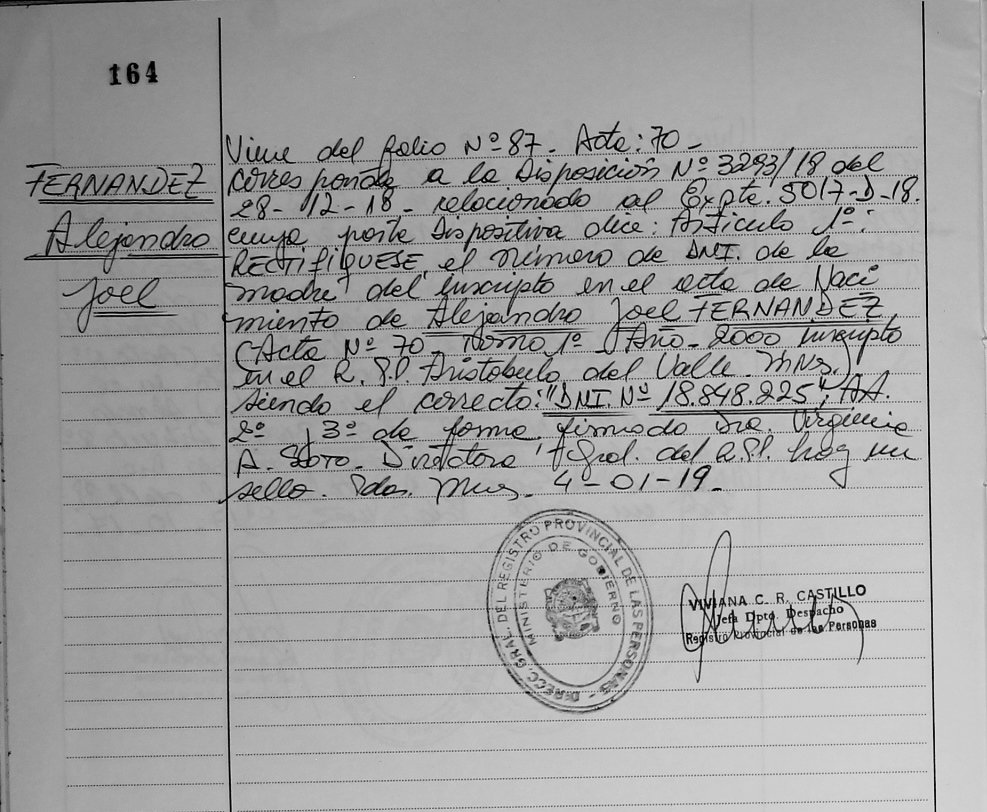 164
FERNANDEZ
Alejandro
Joel
Viene del folio Nº 87_ Acta: 70_
corresponde a la Disposición Nº 3293/18 del
28-12-18_ relacionado al Expte. 5017-D-18.
cuya parte Dispositiva dice: Artículo 1º:
RECTIFIQUESE, el número de DNI. de la
madre del inscripto en el acta de Naci
miento de Alejandro Joel FERNANDEZ
(Acta Nº 70_ Tomo 1º_ Año_ 2000 inscripto
en el R.P.P. Aristobulo del Valle. Mnes.)
siendo el correcto: "DNI. Nº 18.848.225", AA.
2º, 3º de forma, firmado Dra. Virginia
A. Directora Gral. del R.P.P. hay un
sello. Pdas. Mnes. 4-01-19_
DIRECC. GRAL. DEL REGISTRO PROVINCIAL DE LAS PERSONAS -
MINISTERIO DE GOBIERNO
VIVIANA C. R. CASTILLO
Jefa Dpto. Despacho
Registro Provincial de las Personas